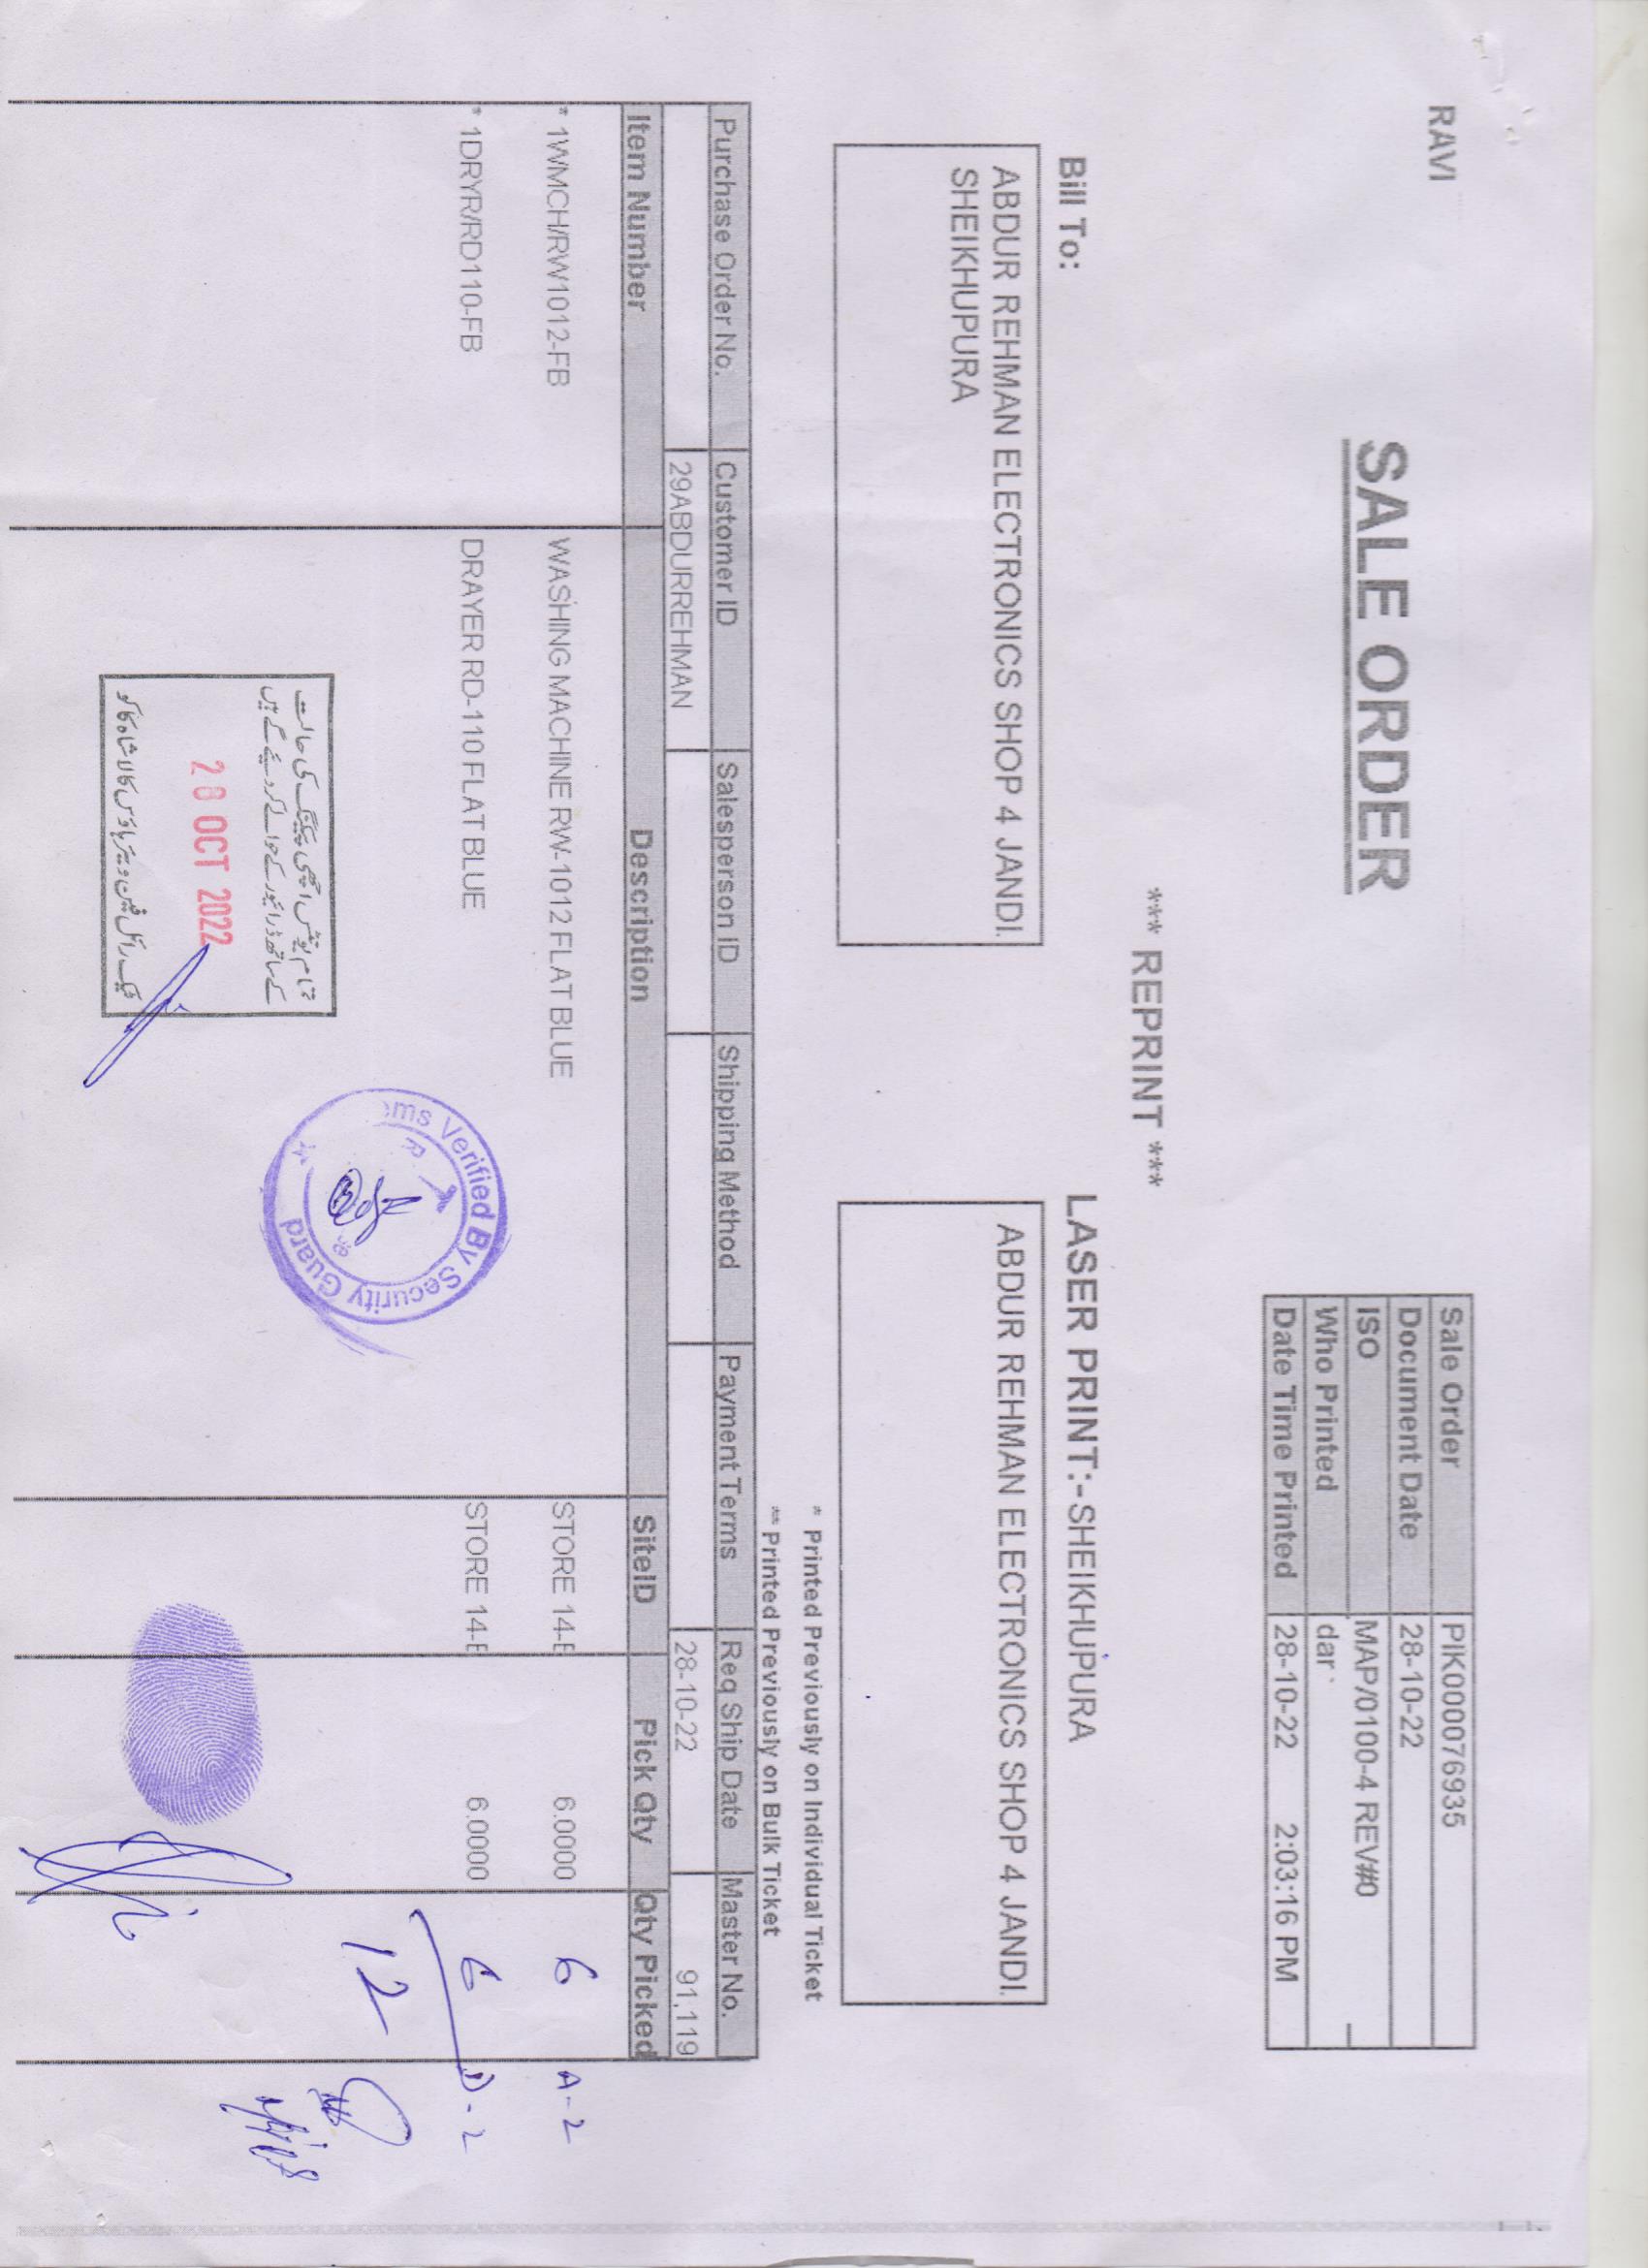 RAVI
SALE ORDER
Sale Order PIK000076935
Document Date 28-10-22
ISO MAP/0100-4 REV#0
Who Printed dar
Date Time Printed 28-10-22 2:03:16 PM
*** REPRINT ***
Bill To:
LASER PRINT:-SHEIKHUPURA
ABDUR REHMAN ELECTRONICS SHOP 4 JANDI.
SHEIKHUPURA
ABDUR REHMAN ELECTRONICS SHOP 4 JANDI.
* Printed Previously on Individual Ticket
** Printed Previously on Bulk Ticket
Purchase Order No. Customer ID Salesperson ID Shipping Method Payment Terms Req Ship Date Master No.
29ABDURREHMAN 28-10-22 91,119
Item Number Description SiteID Pick Qty Qty Picked
* 1WMCH/RW1012-FB WASHING MACHINE RW-1012 FLAT BLUE STORE 14-E 6.0000 6 A-2
* 1DRYR/RD110-FB DRAYER RD-110 FLAT BLUE STORE 14-E 6.0000 6 D-2
12
Verified By Security Guard
تمام یونٹس اچھی پیکنگ کی حالت
کے ساتھ ڈرائیور کے حوالے کر دیئے گے ہیں
28 OCT 2022
ٹیک رائل فین ویئر ہاؤس کالا شاہ کاکو